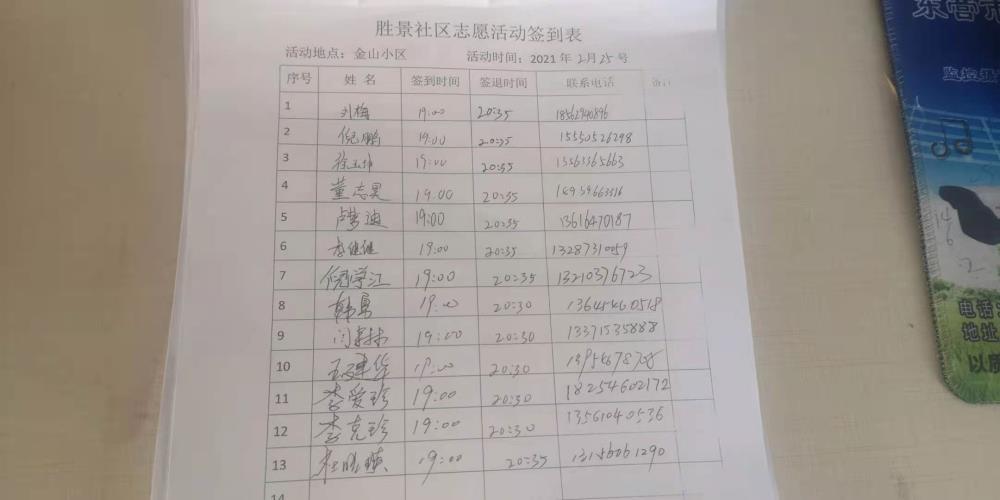 胜景社区志愿活动签到表
活动地点：金山小区 活动时间：2021年2月25号
序号 姓名 签到时间 签退时间 联系电话 备注
1 刘梅 19:00 20:35 18562940896
2 倪鹏 19:00 20:35 15550526298
3 19:00 20:35 13563365663
4 董志昊 19:00 20:35
5 卢梦迪 19:00 20:35 13616470187
6 李健健 19:00 20:35 13287310059
7 倪学江 19:00 20:35 13210376723
8 韩勇 19:00 20:30
9 闫 19:00 20:30 13371535888
10 王建华 19:00 20:30
11 李爱珍 19:00 20:30 18254602172
12 李克珍 19:00 20:30 13561040536
13 杜晓 19:00 20:35
14
东营市
监控报
电话
地址
以质